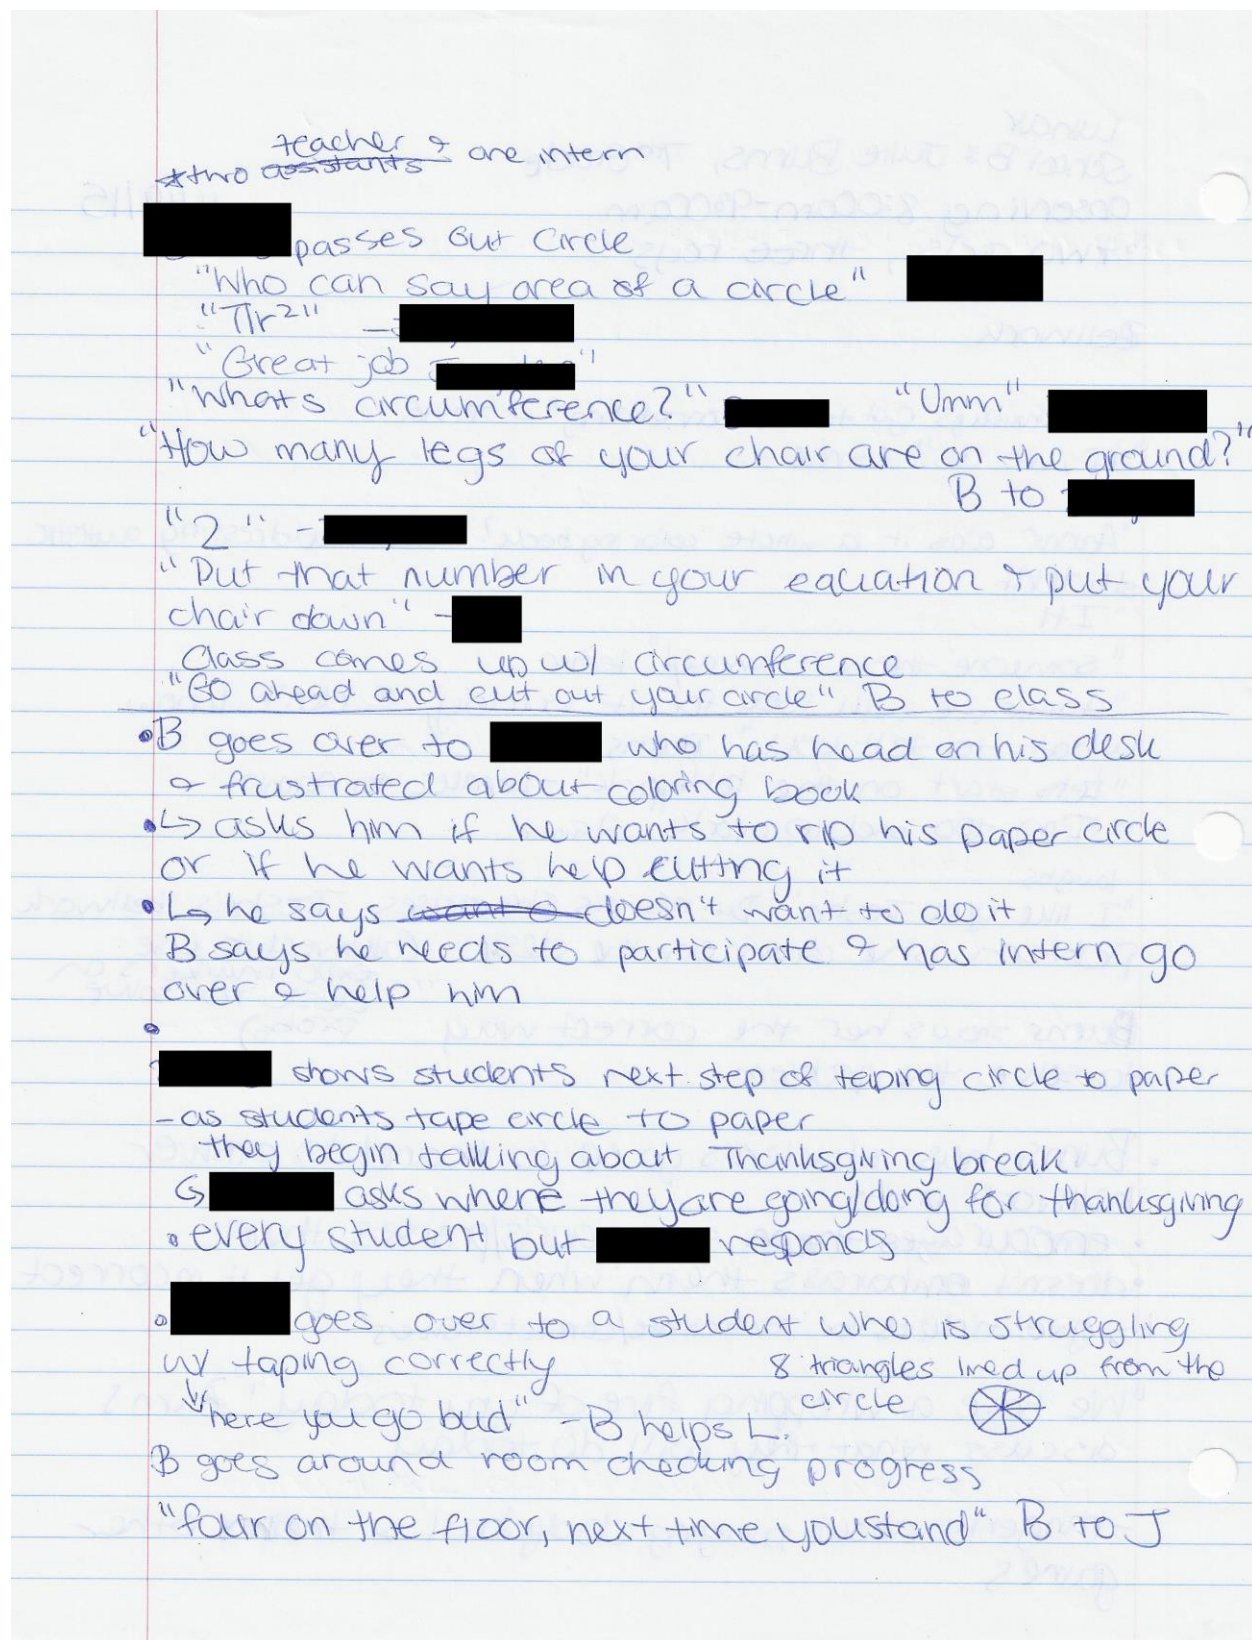 teacher & one intern
*two assistants
passes out circle
"Who can say area of a circle"
"πr²" -
"Great job
"Whats circumference?" "Umm"
"How many legs of your chair are on the ground?"
B to
"2" -
"Put that number in your equation & put your
chair down" -
Class comes up w/ circumference
"Go ahead and cut out your circle" B to class
• B goes over to who has head on his desk
& frustrated about coloring book
• ↳ asks him if he wants to rip his paper circle
or if he wants help cutting it
• ↳ he says want o doesn't want to do it
B says he needs to participate & has intern go
over & help him
•
shows students next step of taping circle to paper
- as students tape circle to paper
they begin talking about Thanksgiving break
↳ asks where they are going/doing for thanksgiving
• every student but responds
• goes over to a student who is struggling
w/ taping correctly
8 triangles lined up from the
circle
"here you go bud" - B helps L.
B goes around room checking progress
"four on the floor, next time you stand" B to J